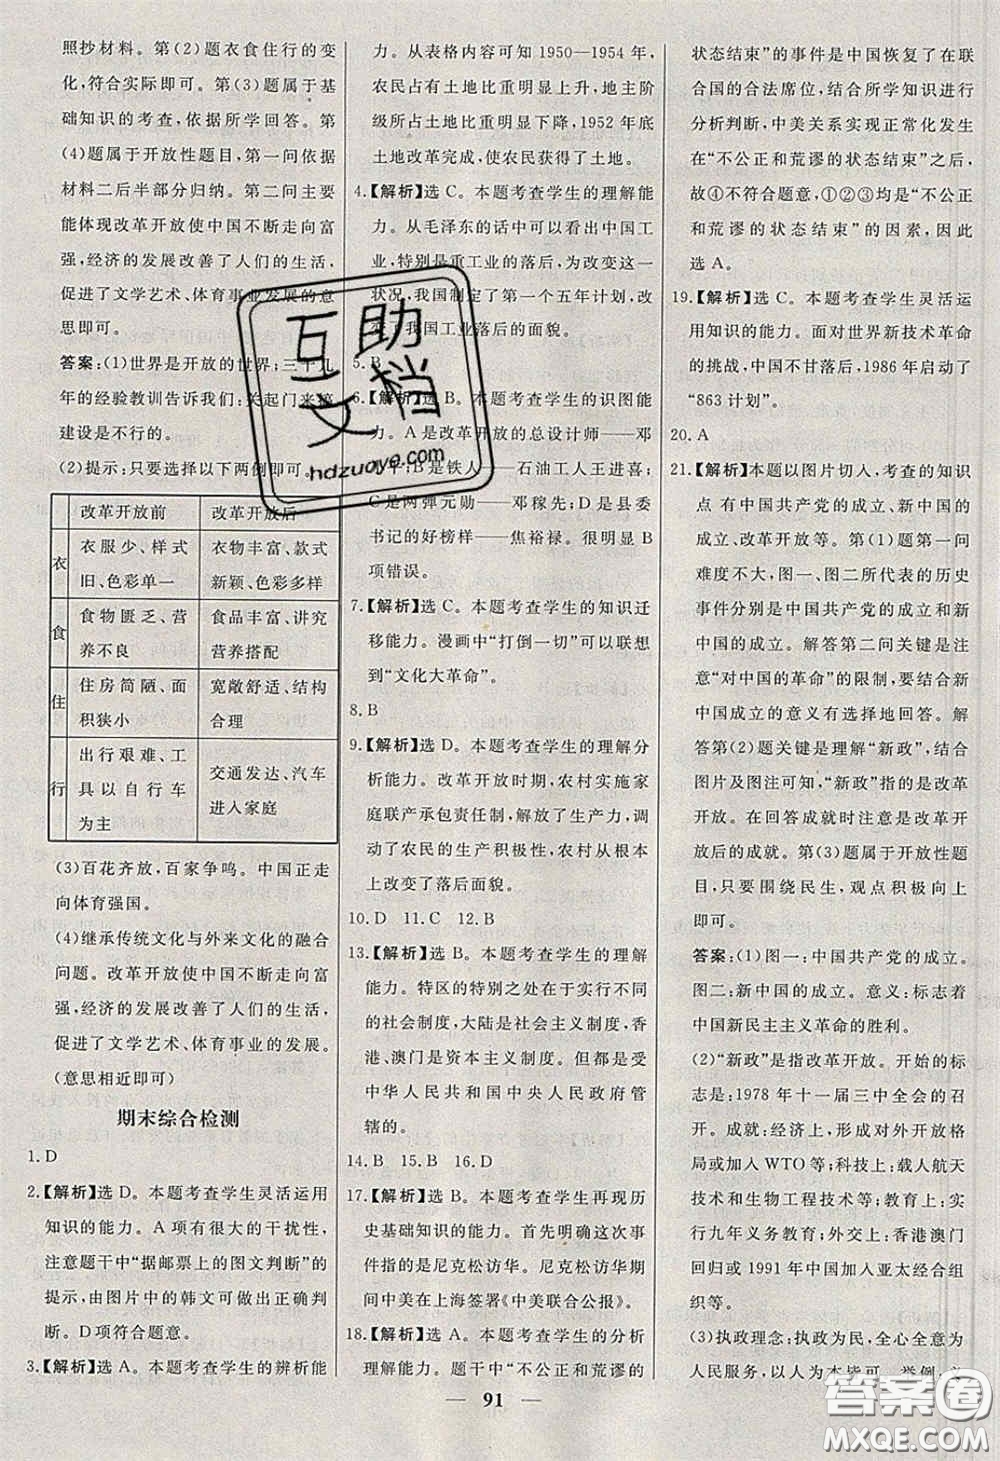 照抄材料。第(2)题衣食住行的变
化,符合实际即可。第(3)题属于基
础知识的考查,依据所学回答。第
(4)题属于开放性题目,第一问依据
材料二后半部分归纳。第二问主要
能体现改革开放使中国不断走向富
强,经济的发展改善了人们的生活,
促进了文学艺术、体育事业发展的意
思即可。
答案:(1)世界是开放的世界;三十几
年的经验教训告诉我们:关起门来搞
建设是不行的。
(2)提示:只要选择以下两例即可。
改革开放前 改革开放后
衣 衣服少、样式旧、色彩单一 衣物丰富、款式新颖、色彩多样
食 食物匮乏、营养不良 食品丰富、讲究营养搭配
住 住房简陋、面积狭小 宽敞舒适、结构合理
行 出行艰难、工具以自行车为主 交通发达、汽车进入家庭
(3)百花齐放,百家争鸣。中国正走
向体育强国。
(4)继承传统文化与外来文化的融合
问题。改革开放使中国不断走向富
强,经济的发展改善了人们的生活,
促进了文学艺术、体育事业的发展。
(意思相近即可)
期末综合检测
1.D
2.【解析】选 D。本题考查学生灵活运用
知识的能力。A 项有很大的干扰性,
注意题干中“据邮票上的图文判断”的
提示,由图片中的韩文可做出正确判
断。D项符合题意。
3.【解析】选 A。本题考查学生的辨析能
力。从表格内容可知 1950—1954 年,
农民占有土地比重明显上升,地主阶
级所占土地比重明显下降,1952 年底
土地改革完成,使农民获得了土地。
4.【解析】选 C。本题考查学生的理解能
力。从毛泽东的话中可以看出中国工
业,特别是重工业的落后,为改变这一
状况,我国制定了第一个五年计划,改
变了我国工业落后的面貌。
5.B
6.【解析】选 B。本题考查学生的识图能
力。A 是改革开放的总设计师——邓
小平;B是铁人——石油工人王进喜;
C是两弹元勋——邓稼先;D是县委
书记的好榜样——焦裕禄。很明显 B
项错误。
7.【解析】选 C。本题考查学生的知识迁
移能力。漫画中“打倒一切”可以联想
到“文化大革命”。
8.B
9.【解析】选 D。本题考查学生的理解分
析能力。改革开放时期,农村实施家
庭联产承包责任制,解放了生产力,调
动了农民的生产积极性,农村从根本
上改变了落后面貌。
10.D 11.C 12.B
13.【解析】选 B。本题考查学生的理解
能力。特区的特别之处在于实行不同
的社会制度,大陆是社会主义制度,香
港、澳门是资本主义制度。但都是受
中华人民共和国中央人民政府管
辖的。
14.B 15.B 16.D
17.【解析】选 B。本题考查学生再现历
史基础知识的能力。首先明确这次事
件指的是尼克松访华。尼克松访华期
间中美在上海签署《中美联合公报》。
18.【解析】选 A。本题考查学生的分析
理解能力。题干中“不公正和荒谬的
状态结束”的事件是中国恢复了在联
合国的合法席位,结合所学知识进行
分析判断,中美关系实现正常化发生
在“不公正和荒谬的状态结束”之后,
故④不符合题意,①②③均是“不公正
和荒谬的状态结束”的因素,因此
选 A。
19.【解析】选 C。本题考查学生灵活运
用知识的能力。面对世界新技术革命
的挑战,中国不甘落后,1986 年启动了
“863 计划”。
20.A
21.【解析】本题以图片切入,考查的知识
点 有中国共产党的成立、新中国的
成立、改革开放等。第(1)题第一问
难度不大,图一、图二所代表的历史
事件分别是中国共产党的成立和新
中国的成立。解答第二问关键是注
意“对中国的革命”的限制,要结合新
中国成立的意义有选择地回答。解
答第(2)题关键是理解“新政”,结合
图片及图注可知,“新政”指的是改革
开放。在回答成就时注意是改革开
放后的成就。第(3)题属于开放性题
目,只要围绕民生,观点积极向上
即可。
答案:(1)图一:中国共产党的成立。
图二:新中国的成立。意义:标志着
中国新民主主义革命的胜利。
(2)“新政”是指改革开放。开始的标
志是:1978 年十一届三中全会的召
开。成就:经济上,形成对外开放格
局,加入 WTO 等;科技上:载人航天
技术和生物工程技术等;教育上:实
行九年义务教育;外交上:香港澳门
回归或 1991 年中国加入亚太经合组
织等。
(3)执政理念:执政为民,全心全意为
人民服务,以人为本皆可。举例:
91
互助
文档
hdzuoye.com
答案圈
MXQE.COM